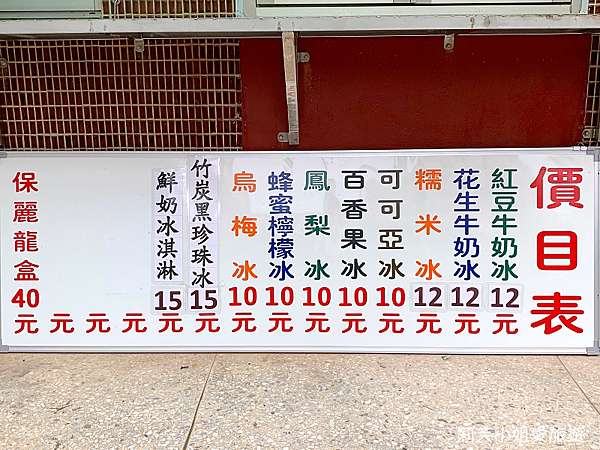 價目表
紅豆牛奶冰12元
花生牛奶冰12元
糯米冰12元
可可亞冰10元
百香果冰10元
鳳梨冰10元
蜂蜜檸檬冰10元
烏梅冰10元
竹炭黑珍珠冰15元
鮮奶冰淇淋15元
元
元
元
保麗龍盒40元